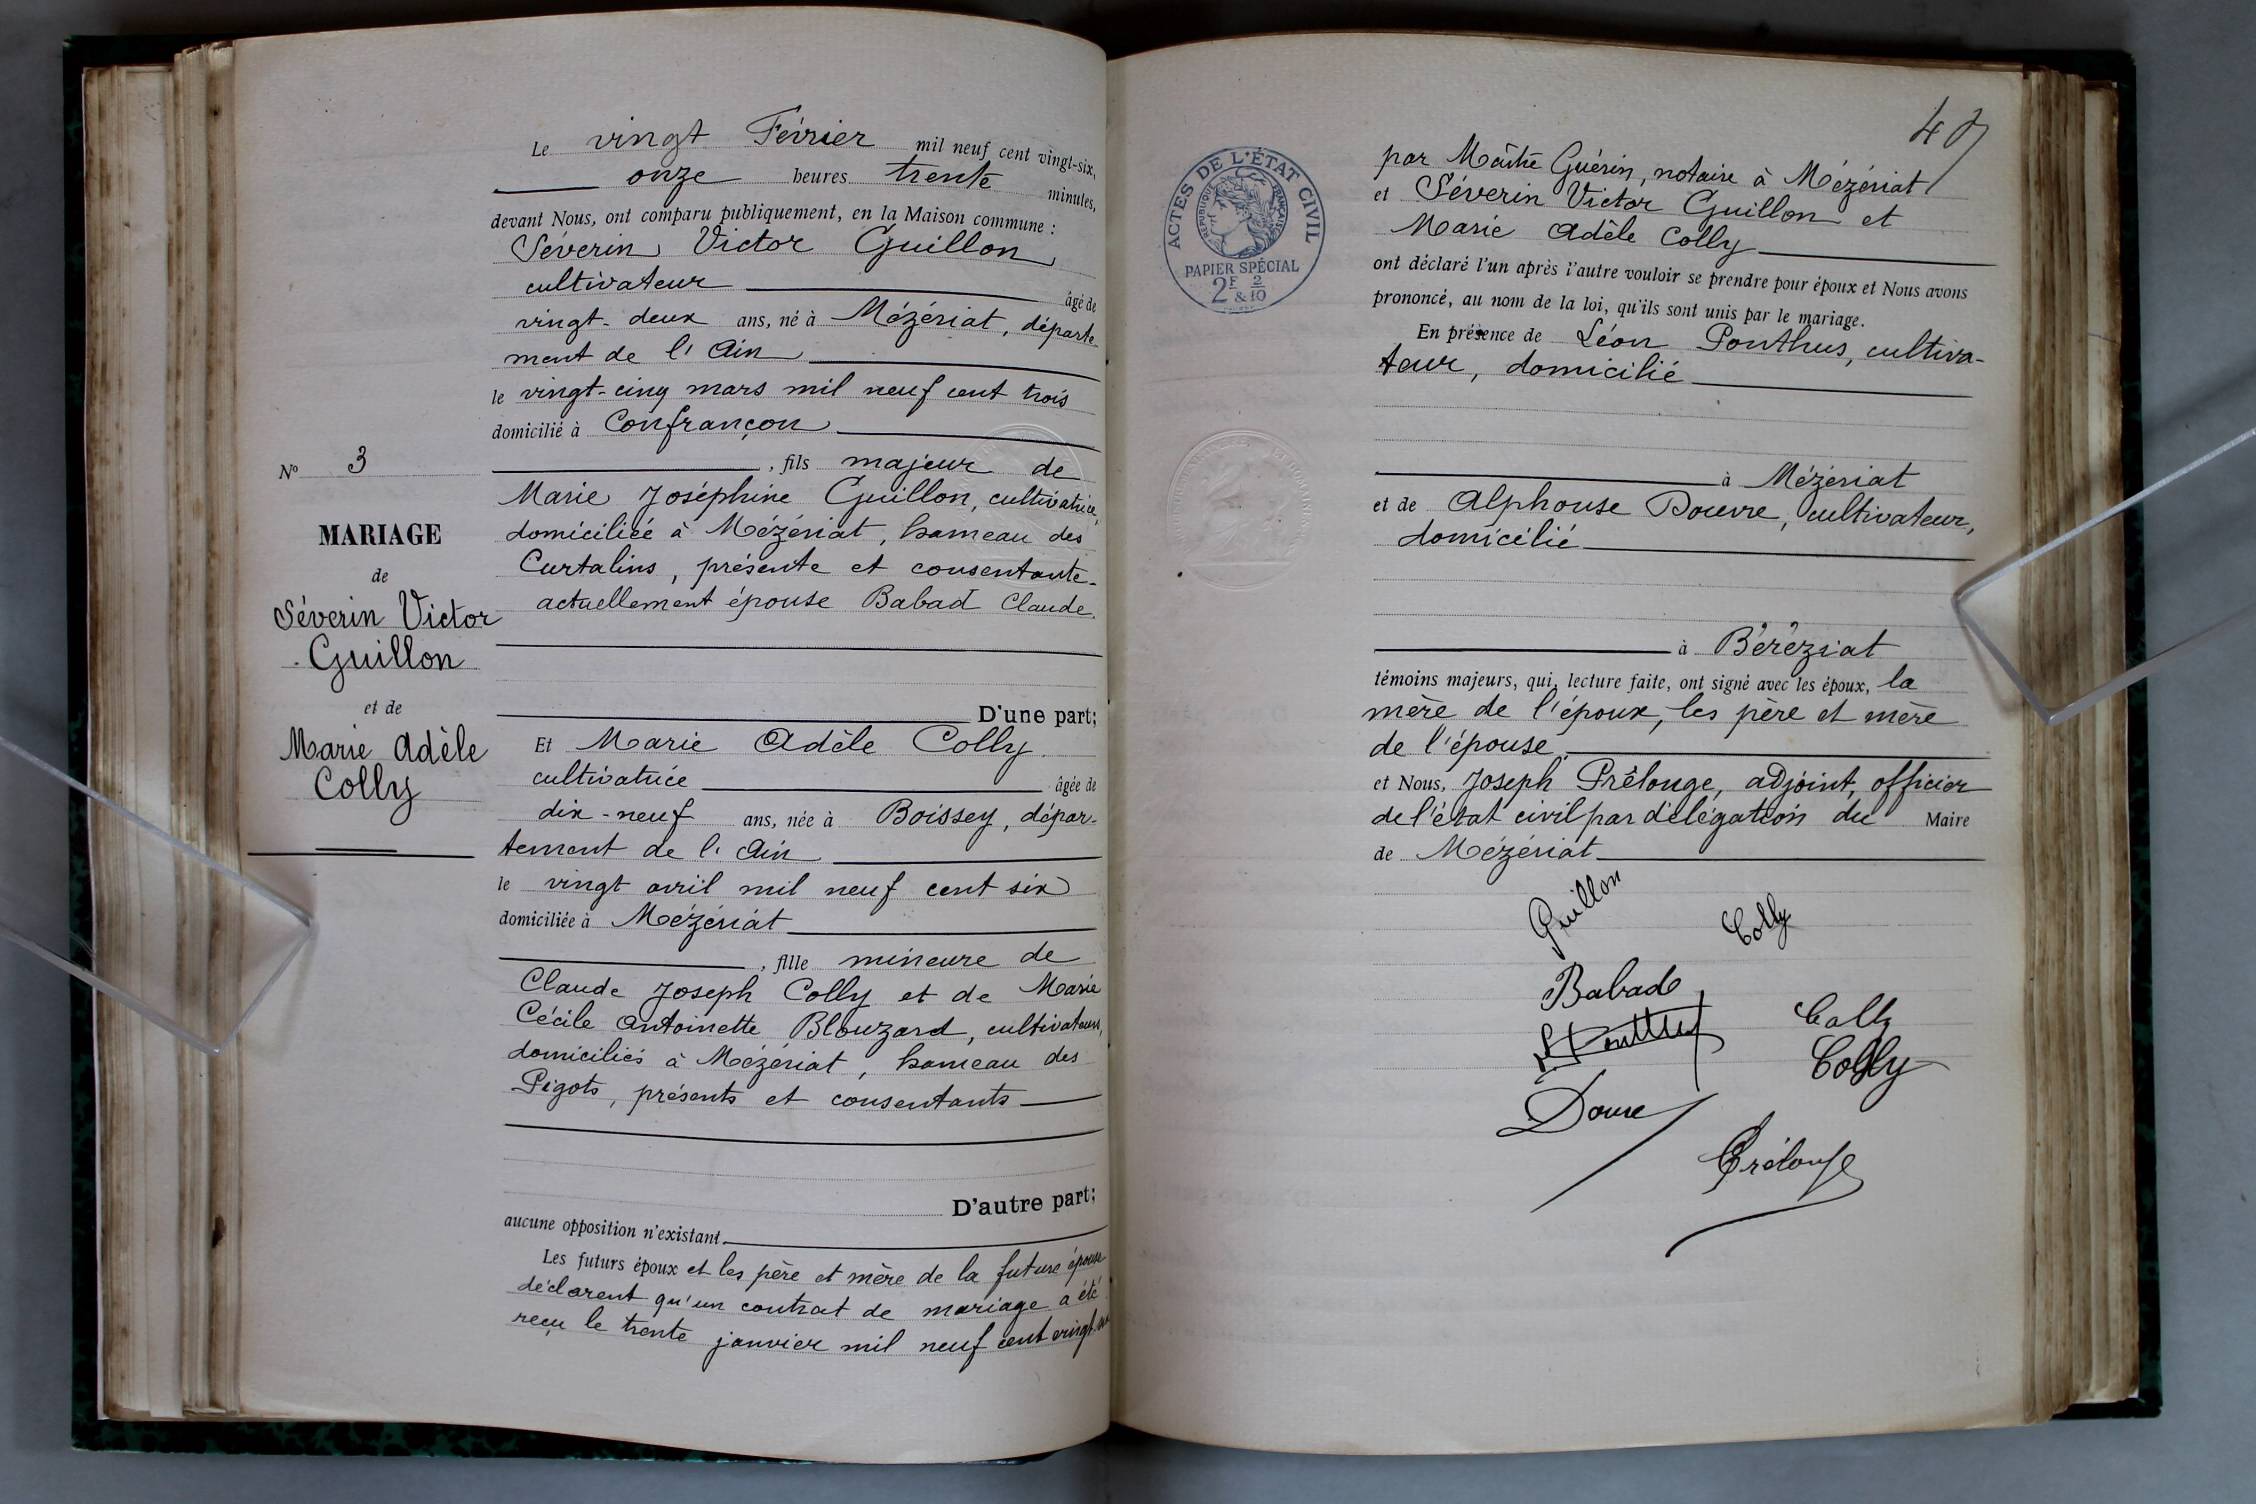 N° 3
MARIAGE
de
Séverin Victor
Guillon
et de
Marie Adèle
Colly
Le vingt Février mil neuf cent vingt-six,
onze heures trente minutes,
devant Nous, ont comparu publiquement, en la Maison commune :
Séverin Victor Guillon
cultivateur âgé de
vingt-deux ans, né à Mézériat, départe
ment de l'Ain
le vingt-cinq mars mil neuf cent trois
domicilié à Confrançon
, fils majeur de
Marie Joséphine Guillon, cultivatrice,
domiciliée à Mézériat, hameau des
Curtalins, présente et consentante-
actuellement épouse Babad Claude.
D'une part;
Et Marie Adèle Colly
cultivatrice âgée de
dix-neuf ans, née à Boissey, dépar-
tement de l'Ain
le vingt avril mil neuf cent six
domiciliée à Mézériat
, fille mineure de
Claude Joseph Colly et de Marie
Cécile Antoinette Blouzard, cultivateurs,
domiciliés à Mézériat, hameau des
Pigots, présents et consentants
D'autre part;
aucune opposition n'existant
Les futurs époux et les père et mère de la future épouse
déclarent qu'un contrat de mariage a été
reçu le trente janvier mil neuf cent vingt-six
ACTES DE L'ÉTAT CIVIL
RÉPUBLIQUE FRANÇAISE
PAPIER SPÉCIAL
2F & 2/10
par Maître Guérin, notaire à Mézériat
et Séverin Victor Guillon et
Marie Adèle Colly
ont déclaré l'un après l'autre vouloir se prendre pour époux et Nous avons
prononcé, au nom de la loi, qu'ils sont unis par le mariage.
En présence de Léon Ponthus, cultiva-
teur, domicilié
à Mézériat
et de Alphonse Douvre, cultivateur,
domicilié
à Béréziat
témoins majeurs, qui, lecture faite, ont signé avec les époux, la
mère de l'époux, les père et mère
de l'épouse,
et Nous, Joseph Prélonge, adjoint, officier
de l'état civil par délégation du Maire
de Mézériat
Guillon Colly
Babad
L Ponthus Colly
Colly
Douvre
Prélonge